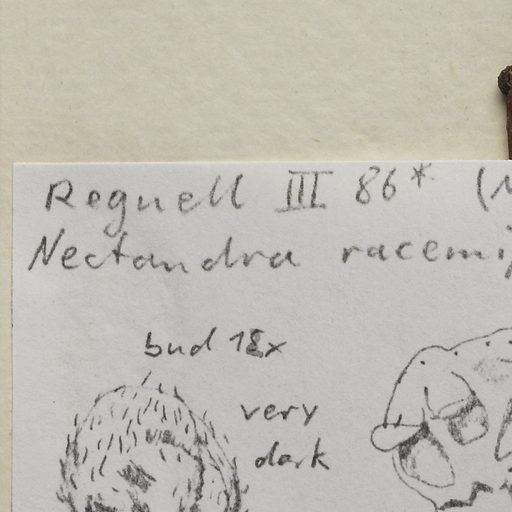 Regnell III 86* (
Nectandra racemi
bud 18x
very
dark